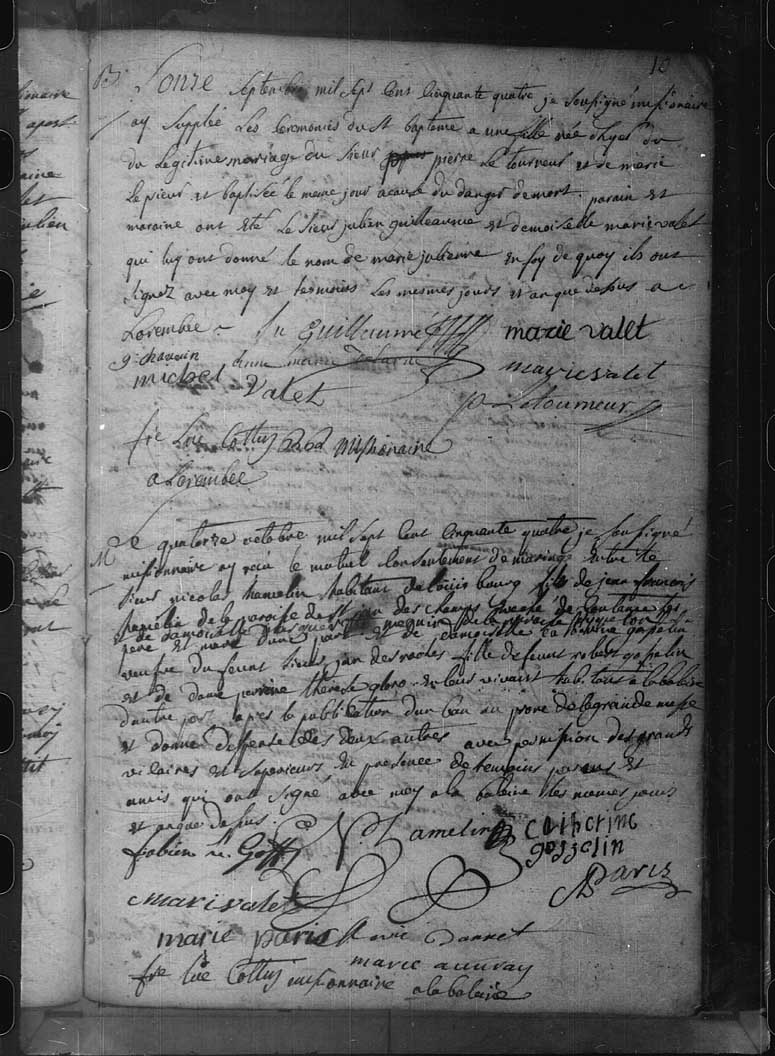 10
B. L'onze Septembre mil Sept Cent Cinquante quatre je Soussigné missionaire
ay Supplée Les Ceremonies du St bapteme a une fille née
du Legitime mariage du Sieur pierre Le tourneur et de marie
et baptisée le meme jour a cause du danger de mort. parain et
maraine ont Eté Le Sieur julien Guilleaume et demoiselle marie valet
qui luy ont donné le nom de marie julienne en foy de quoy ils ont
Signez avec moy et temoins Les mesmes jours et an que dessus a
Lorembec Ju Guillaume marie valet
g. chauvin
michel Valet marie valet
p Letourneur
fre Luc Cottin missionaire
a Lorembec
M. Le quatorze octobre mil Sept Cent Cinquante quatre je Soussigné
missionnaire ay recu le mutuel Consentement de mariage entre le
Sieur nicolas hamelin habitant de Louisbourg fils de jean francois
hamelin de la paroise de St jan des champs Eveché de Coutance Ses
pere et mere d'une part et de demoiselle Catherine gosselin
veufve du feunt Sieur jan des roches fille de feunt robert gosselin
et de dame perrine therese en leur vivant habitans a la baleine
d'autre part apres la publication d'un ban au prone de la grande messe
et donner dispense des deux autres avec permission des grands
vicaires et Superieurs En presence de temoins parens et
amis qui ont Signé avec moy a la baleine Les memes jours
et an que dessus.
fabien N. hamelin catherine
gosselin
mari valet Paris
marie paris
marie auvray
fre Luc Cottin missionnaire a la baleine